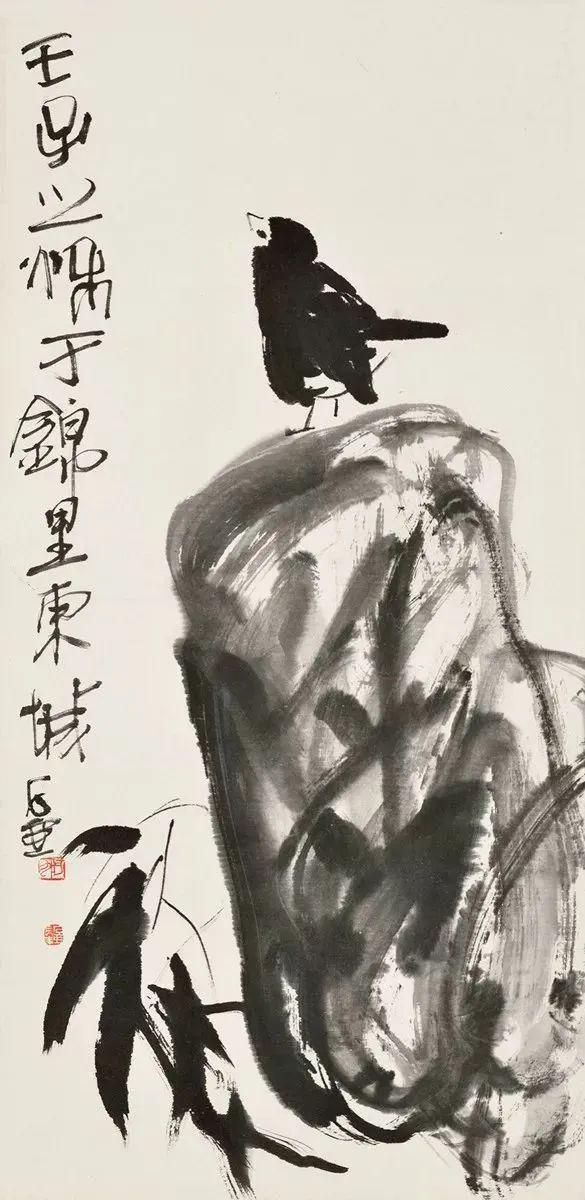 壬子之秋于錦里東城石壺